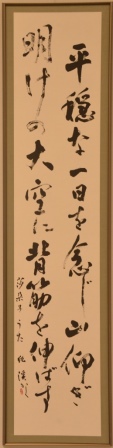 平穏な一日を念じ山仰ぎ
明けの大空に背筋を伸ばす